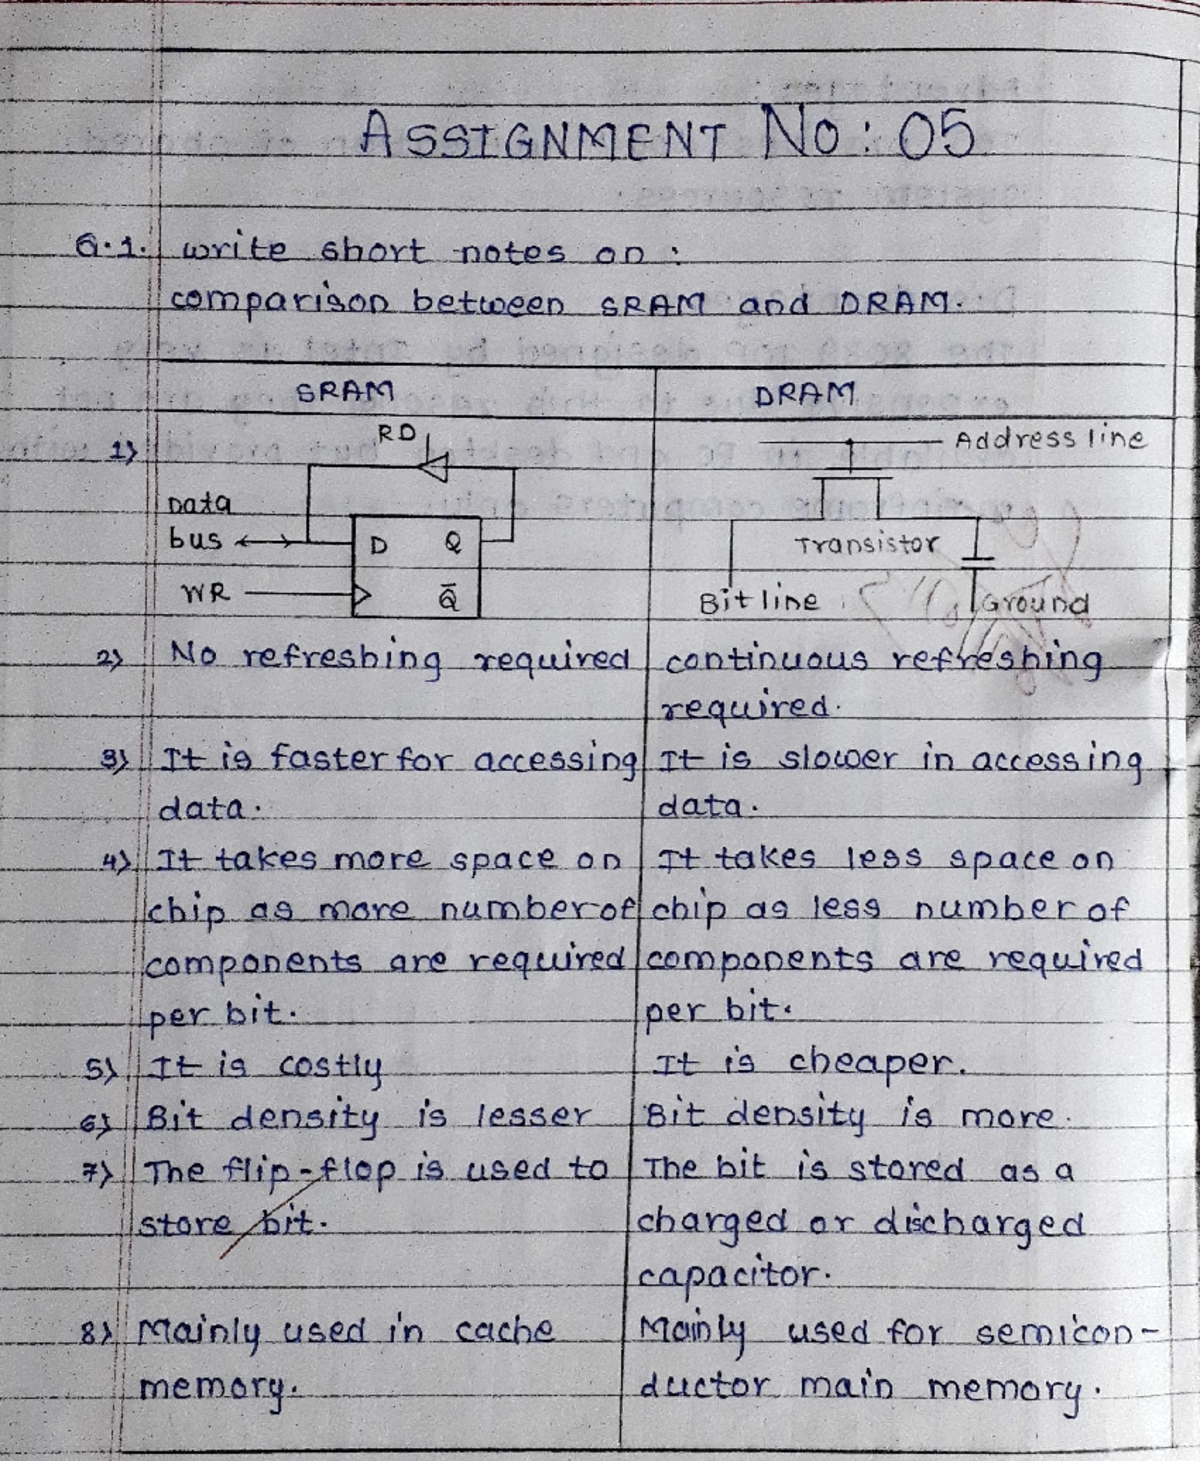 ASSIGNMENT No: 05
Q.1. write short notes on :
comparison between SRAM and DRAM.
SRAM DRAM
1) RD Address line
Data
bus D Q Transistor
WR Q̄ Bit line Ground
2) No refreshing required continuous refreshing
required.
3) It is faster for accessing It is slower in accessing
data. data.
4) It takes more space on It takes less space on
chip as more number of chip as less number of
components are required components are required
per bit. per bit.
5) It is costly It is cheaper.
6) Bit density is lesser Bit density is more.
7) The flip-flop is used to The bit is stored as a
store bit. charged or discharged
capacitor.
8) Mainly used in cache Mainly used for semicon-
memory. ductor main memory.